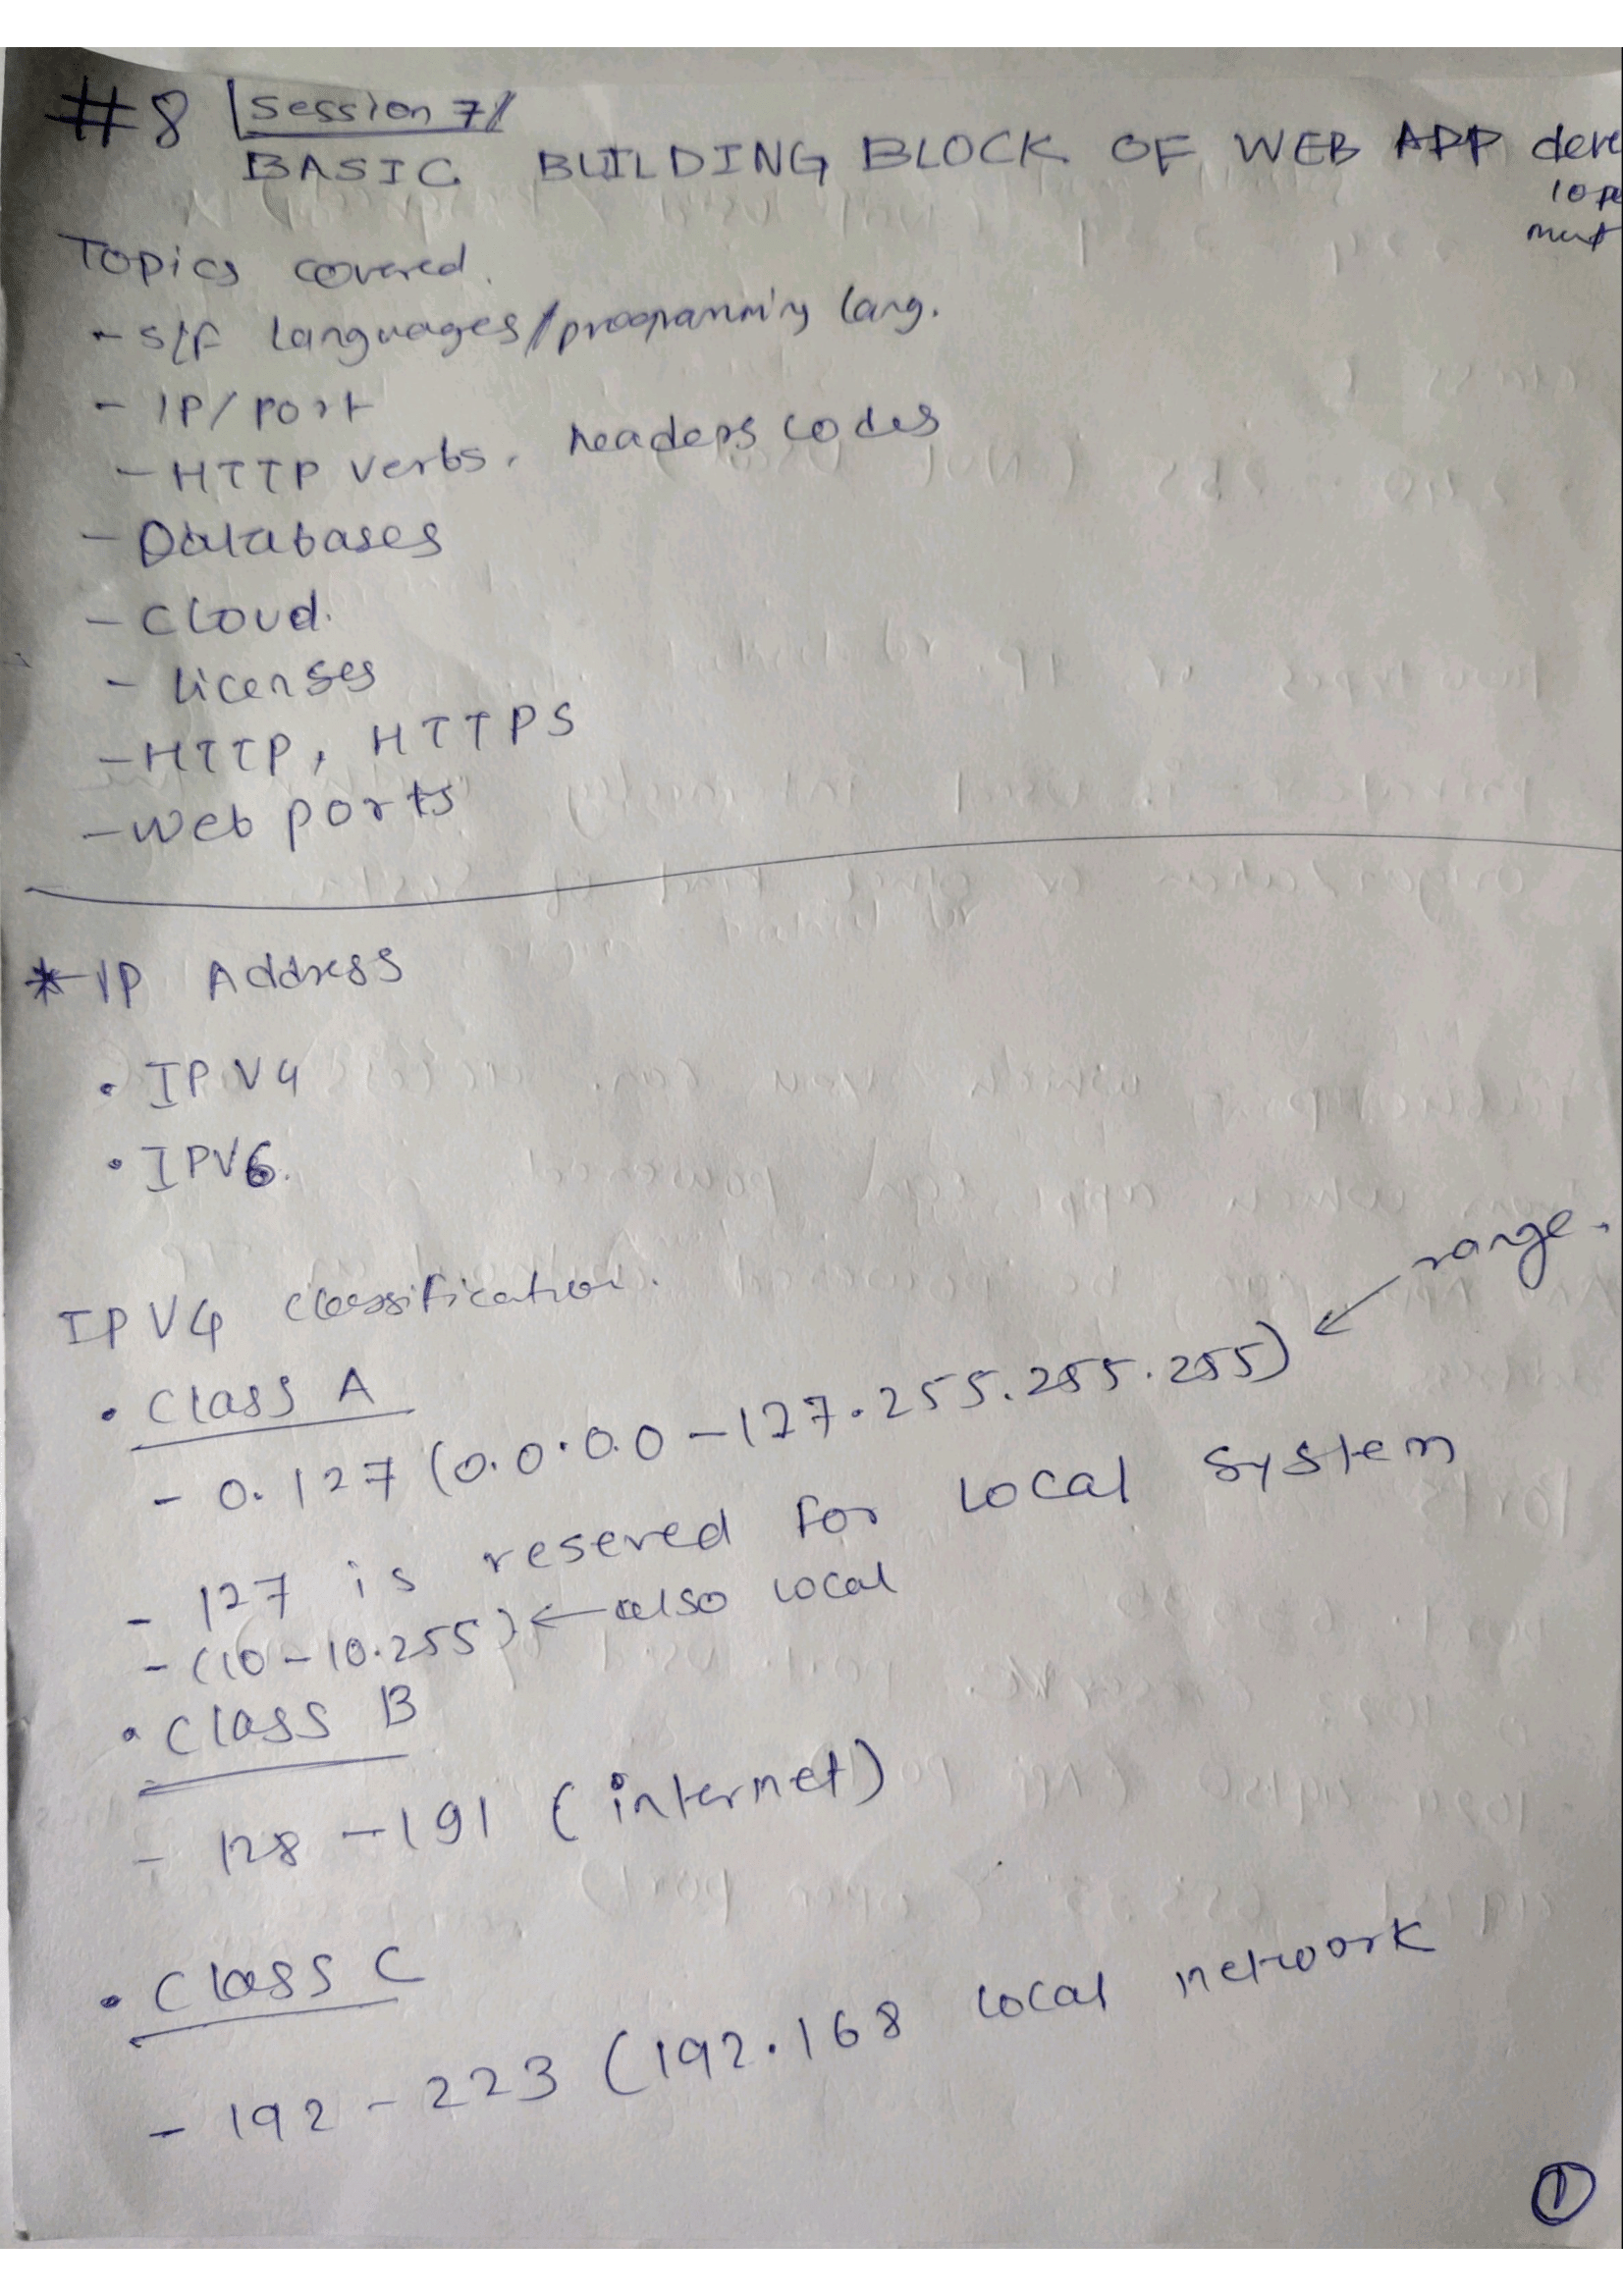 #8 Session 7
BASIC BUILDING BLOCK OF WEB APP deve
lope
ment
Topics covered.
- S/F languages/programming lang.
- IP/port
- HTTP verbs, headers codes
- Databases
- Cloud.
- licenses
- HTTP, HTTPS
- Web ports
* IP Address
• IPV4
• IPV6.
range.
IPV4 classification.
• Class A
- 0.127 (0.0.0.0 - 127.255.255.255)
- 127 is resered for local system
- (10 - 10.255) ← also local
• Class B
- 128 - 191 (internet)
• Class C
- 192 - 223 (192.168 local network
1